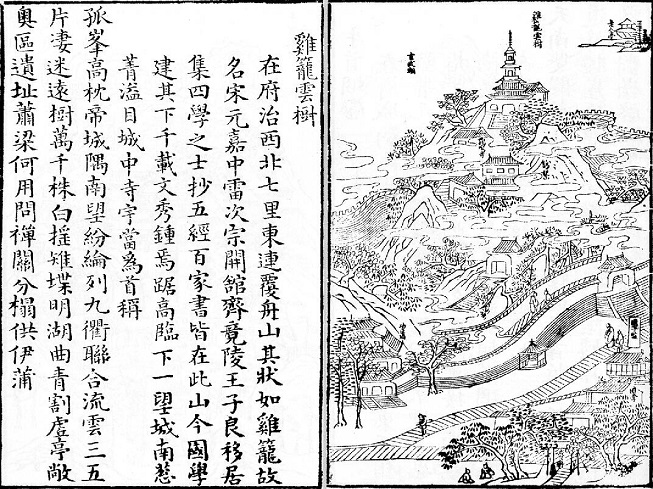 雞籠雲樹
玄武湖
雞籠雲樹
在府治西北七里東連覆舟山其狀如雞籠故
名宋元嘉中雷次宗開館齊竟陵王子良移居
集四學之士抄五經百家書皆在此山今國學
建其下千載文秀鍾焉踞高臨下一望城南葱
菁溢目城中寺宇當為首稱
孤峯高枕帝城隅南望紛綸列九衢聯合流雲三五
片凄迷遠樹萬千株白搖雉堞明湖曲青割虛亭敞
奧區遺址蕭梁何用問禪關分榻供伊蒲